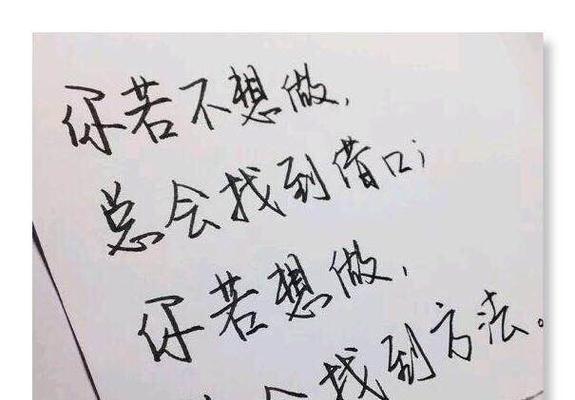 你若不想做，
总会找到借口；
你若想做，
会找到方法。